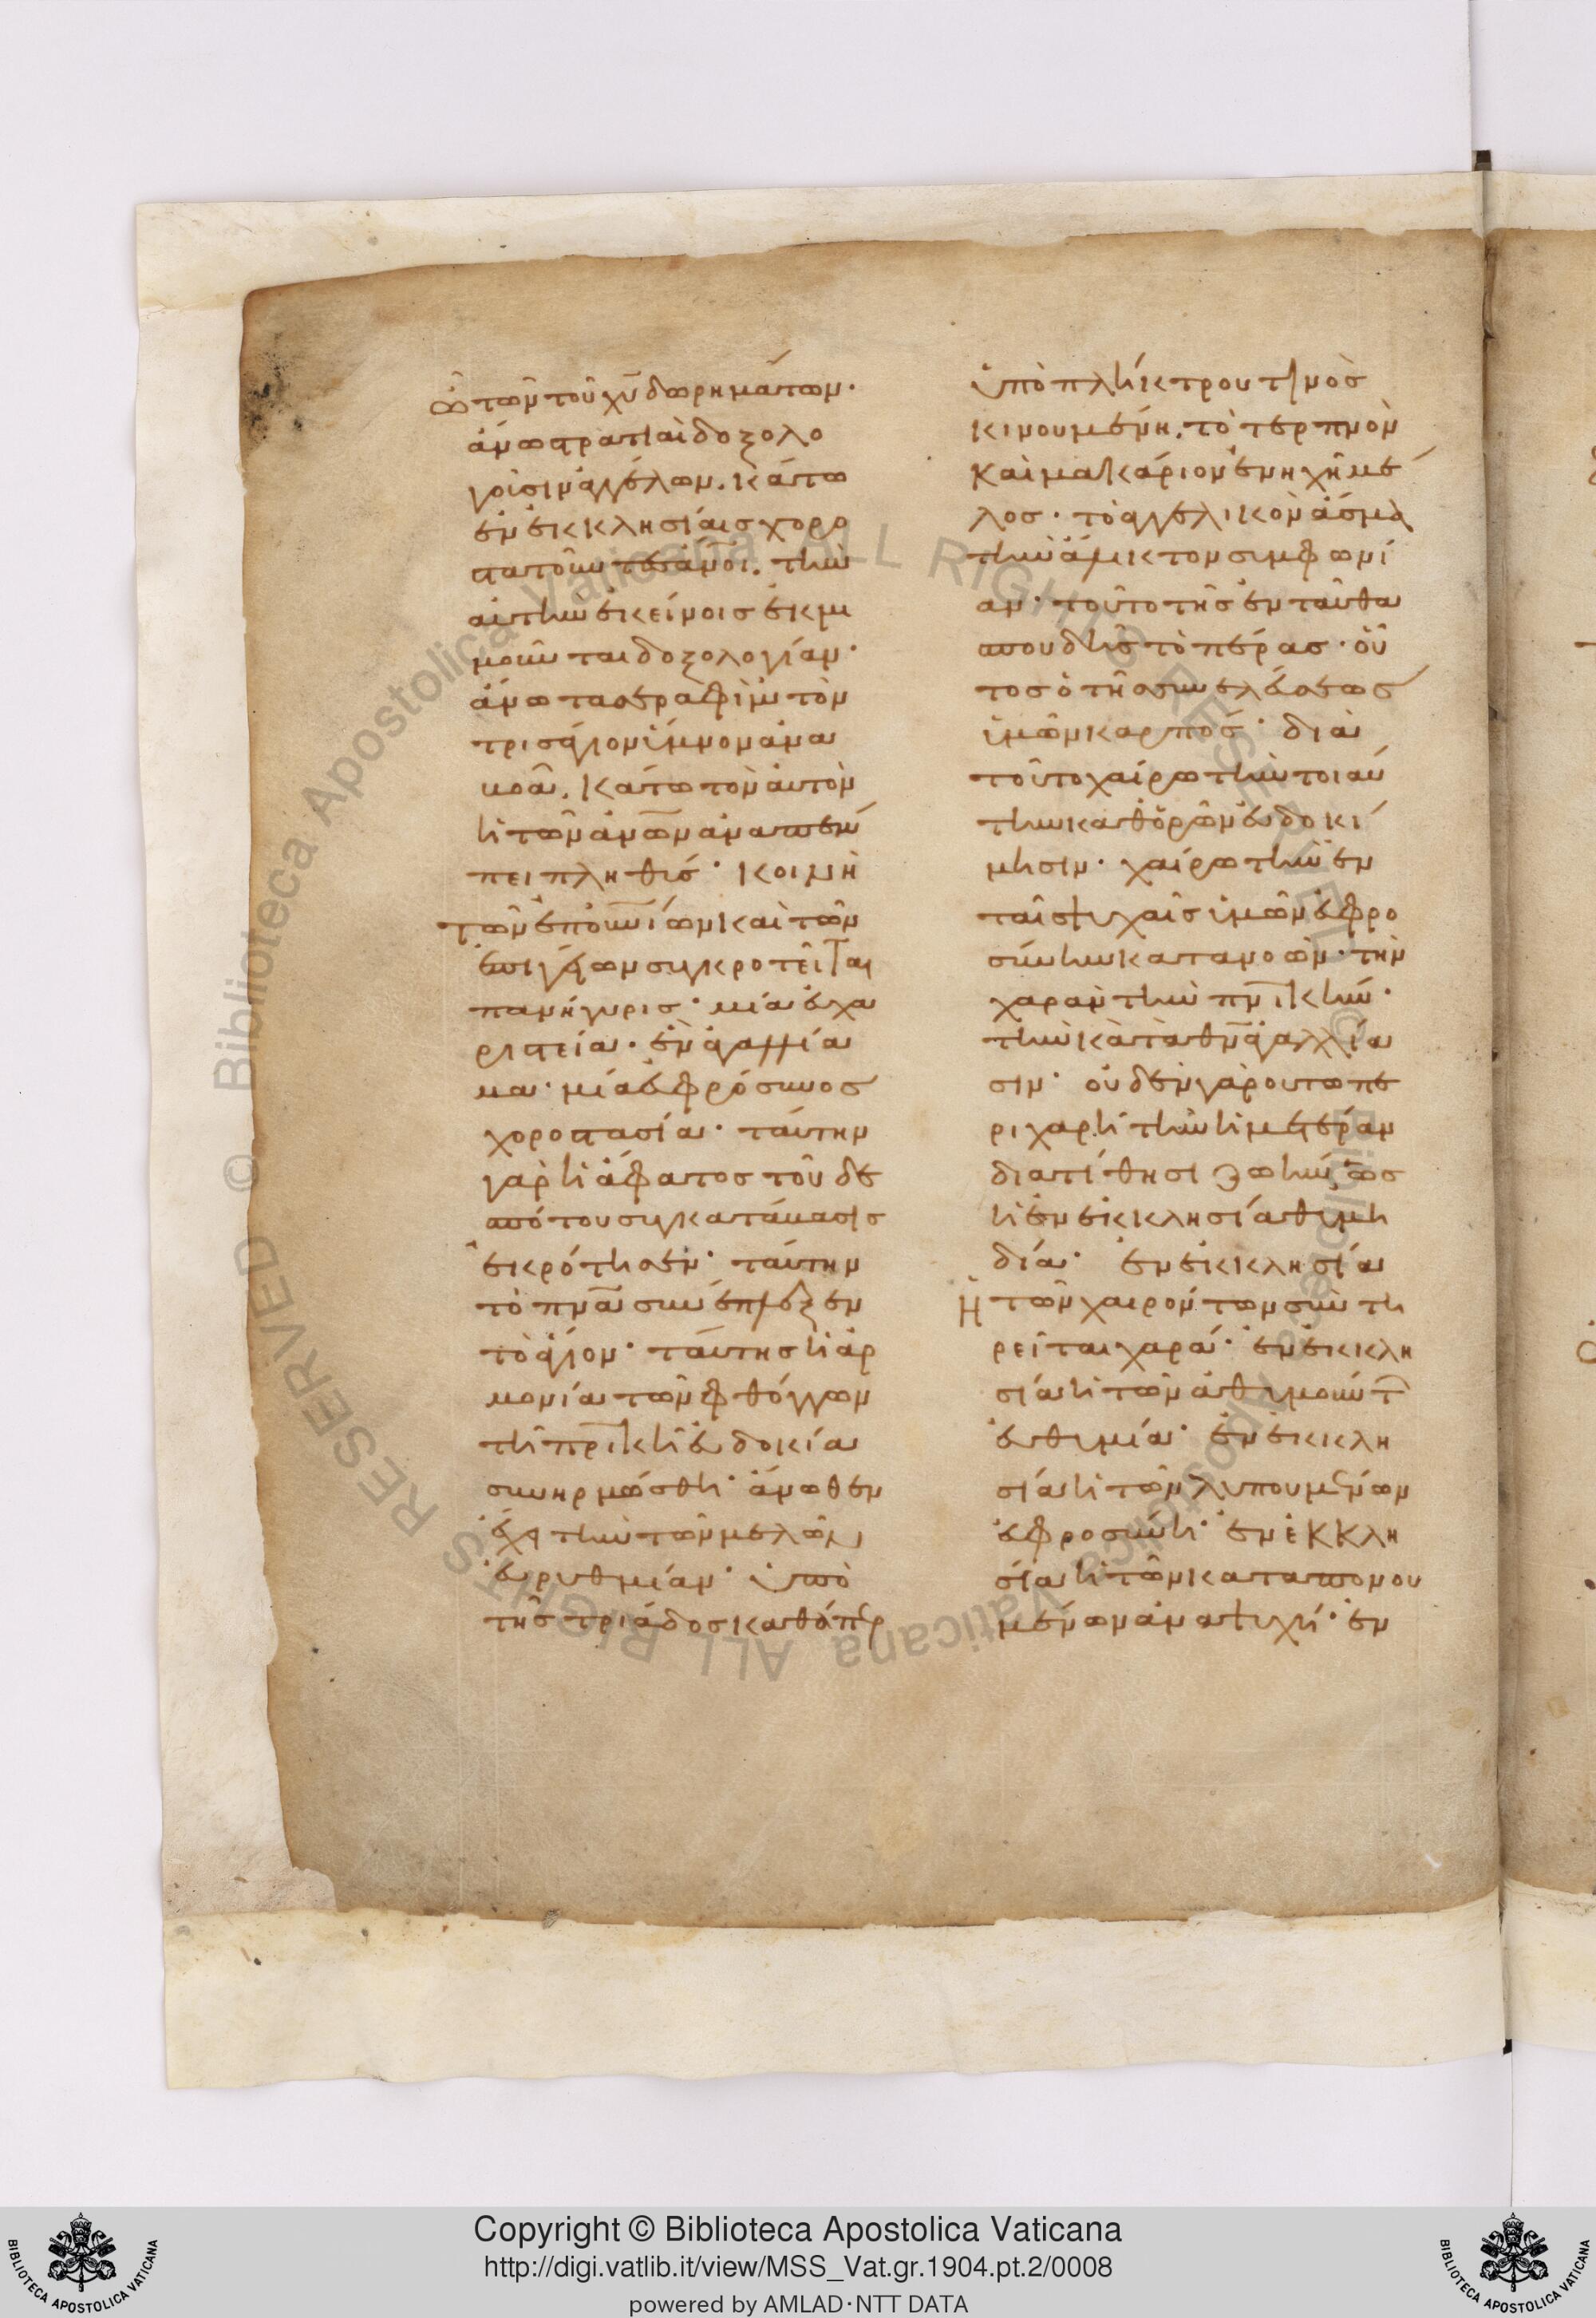 ὢ τῶν τοῦ χυ δωρημάτων·
ἄνω στρατιαὶ δοξολο
γοῦσιν ἀγγέλων. κάτω
ἐν ἐκκλησίαις χορο
στατοῦντες ἄνοι. τὴν
αὐτὴν ἐκείνοις ἐκμι
μοῦνται δοξολογίαν·
ἄνω τὰ σεραφὶμ τὸν
τρισάγιον ὕμνον ἀνα
βοᾶ. κάτω τὸν αὐτὸν
ἡ τῶν ἀνων ἀναπέμ
πει πληθύς· κοινὴ
τῶν ἐπουνίων καὶ τῶν
ἐπιγείων συγκροτεῖται
πανήγυρις· μία εὐχα
ριστεία· ἓν ἀγαλλία
μα· μία εὐφρόσυνος
χοροστασία· ταύτην
γὰρ ἡ ἄφατος τοῦ δε
σπότου συγκατάβασις
ἐκρότησεν· ταύτην
τὸ πνα συνέπλεξεν
τὸ ἅγιον· ταύτης ἡ ἁρ
μονία τῶν φθόγγων
τῆ πρικῆ εὐδοκία
συνηρμόσθη· ἄνωθεν
ἔχει τὴν τῶν μελῶν
εὐρυθμίαν· ὑπὸ
τῆς τριάδος καθάπερ
ὑπὸ πλήκτρου τινὸς
κινουμένη. τὸ τερπνὸν
καὶ μακάριον ἐνηχεῖ μέ
λος· τὸ ἀγγελικὸν ἆσμα
τὴν ἄληκτον συμφωνί
αν· τοῦτο τῆς ἐνταῦθα
σπουδῆς τὸ πέρας· οὗ
τος ὁ τῆς συνελεύσεως
ἡμῶν καρπός· διὰ
τοῦτο χαίρω τὴν τοιαύ
την καθορῶν εὐδοκί
μησιν· χαίρω τὴν ἐν
ταῖς ψυχαῖς ὑμῶν εὐφρο
σύνην κατανοῶν· τὴν
χαρὰν τὴν πνικήν·
τὴν κατὰ θν ἀγαλλία
σιν· οὐδὲν γὰρ οὕτω πε
ριχαρῆ τὴν ἡμετέραν
διατίθησι ζωὴν ὡς
ἡ ἐν ἐκκλησία θυμη
δία· ἐν ἐκκλησία
ἡ τῶν χαιρόντων συντη
ρεῖται χαρά· ἐν ἐκκλη
σία ἡ τῶν ἀθυμούντ
εὐθυμία· ἐν ἐκκλη
σία ἡ τῶν λυπουμένων
εὐφροσύνη· ἐν ἐκκλη
σία ἡ τῶν καταπονου
μένων ἀναψυχή· ἐν
© Biblioteca Apostolica Vaticana ALL RIGHTS RESERVED
Copyright © Biblioteca Apostolica Vaticana
http://digi.vatlib.it/view/MSS_Vat.gr.1904.pt.2/0008
powered by AMLAD·NTT DATA
BIBLIOTECA APOSTOLICA VATICANA
BIBLIOTECA APOSTOLICA VATICANA